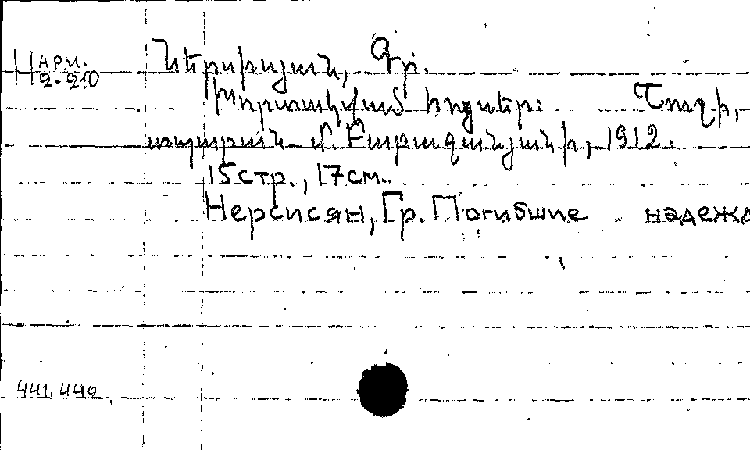 Н АРМ. 2-210
Ներսիսյան, Գր.
Խորտակված հույսեր: Շուշի,
տպարան Մ. 1912.
15стр., 17см.
Нерсисян, Гр. Погибшие надежд
441.440